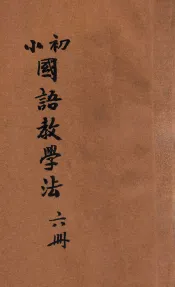 初小國語教學法 六冊